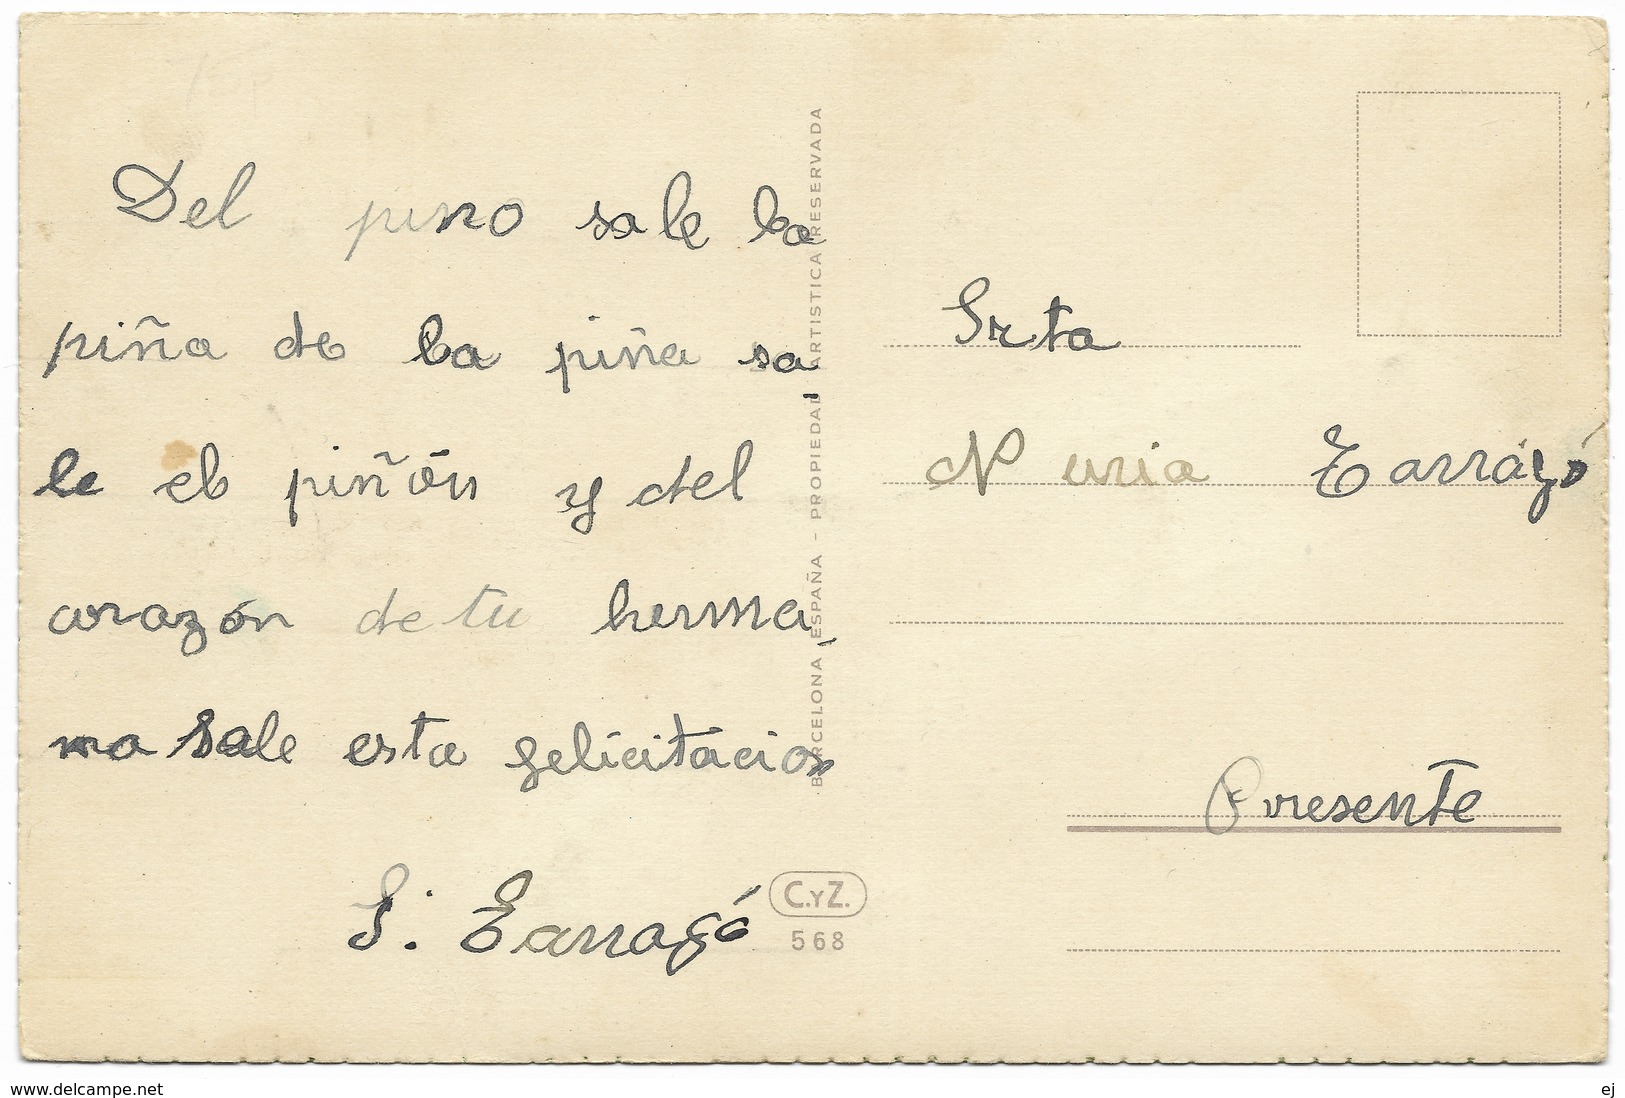 Del pino sale la
piña de la piña sa-
le el piñón y del
corazón de tu herma-
na sale esta felicitacion
S. Tarragó
BARCELONA ESPAÑA - PROPIEDAD ARTISTICA RESERVADA
C.YZ.
568
Srta
Nuria Tarragó
Presente
www.delcampe.net
ej